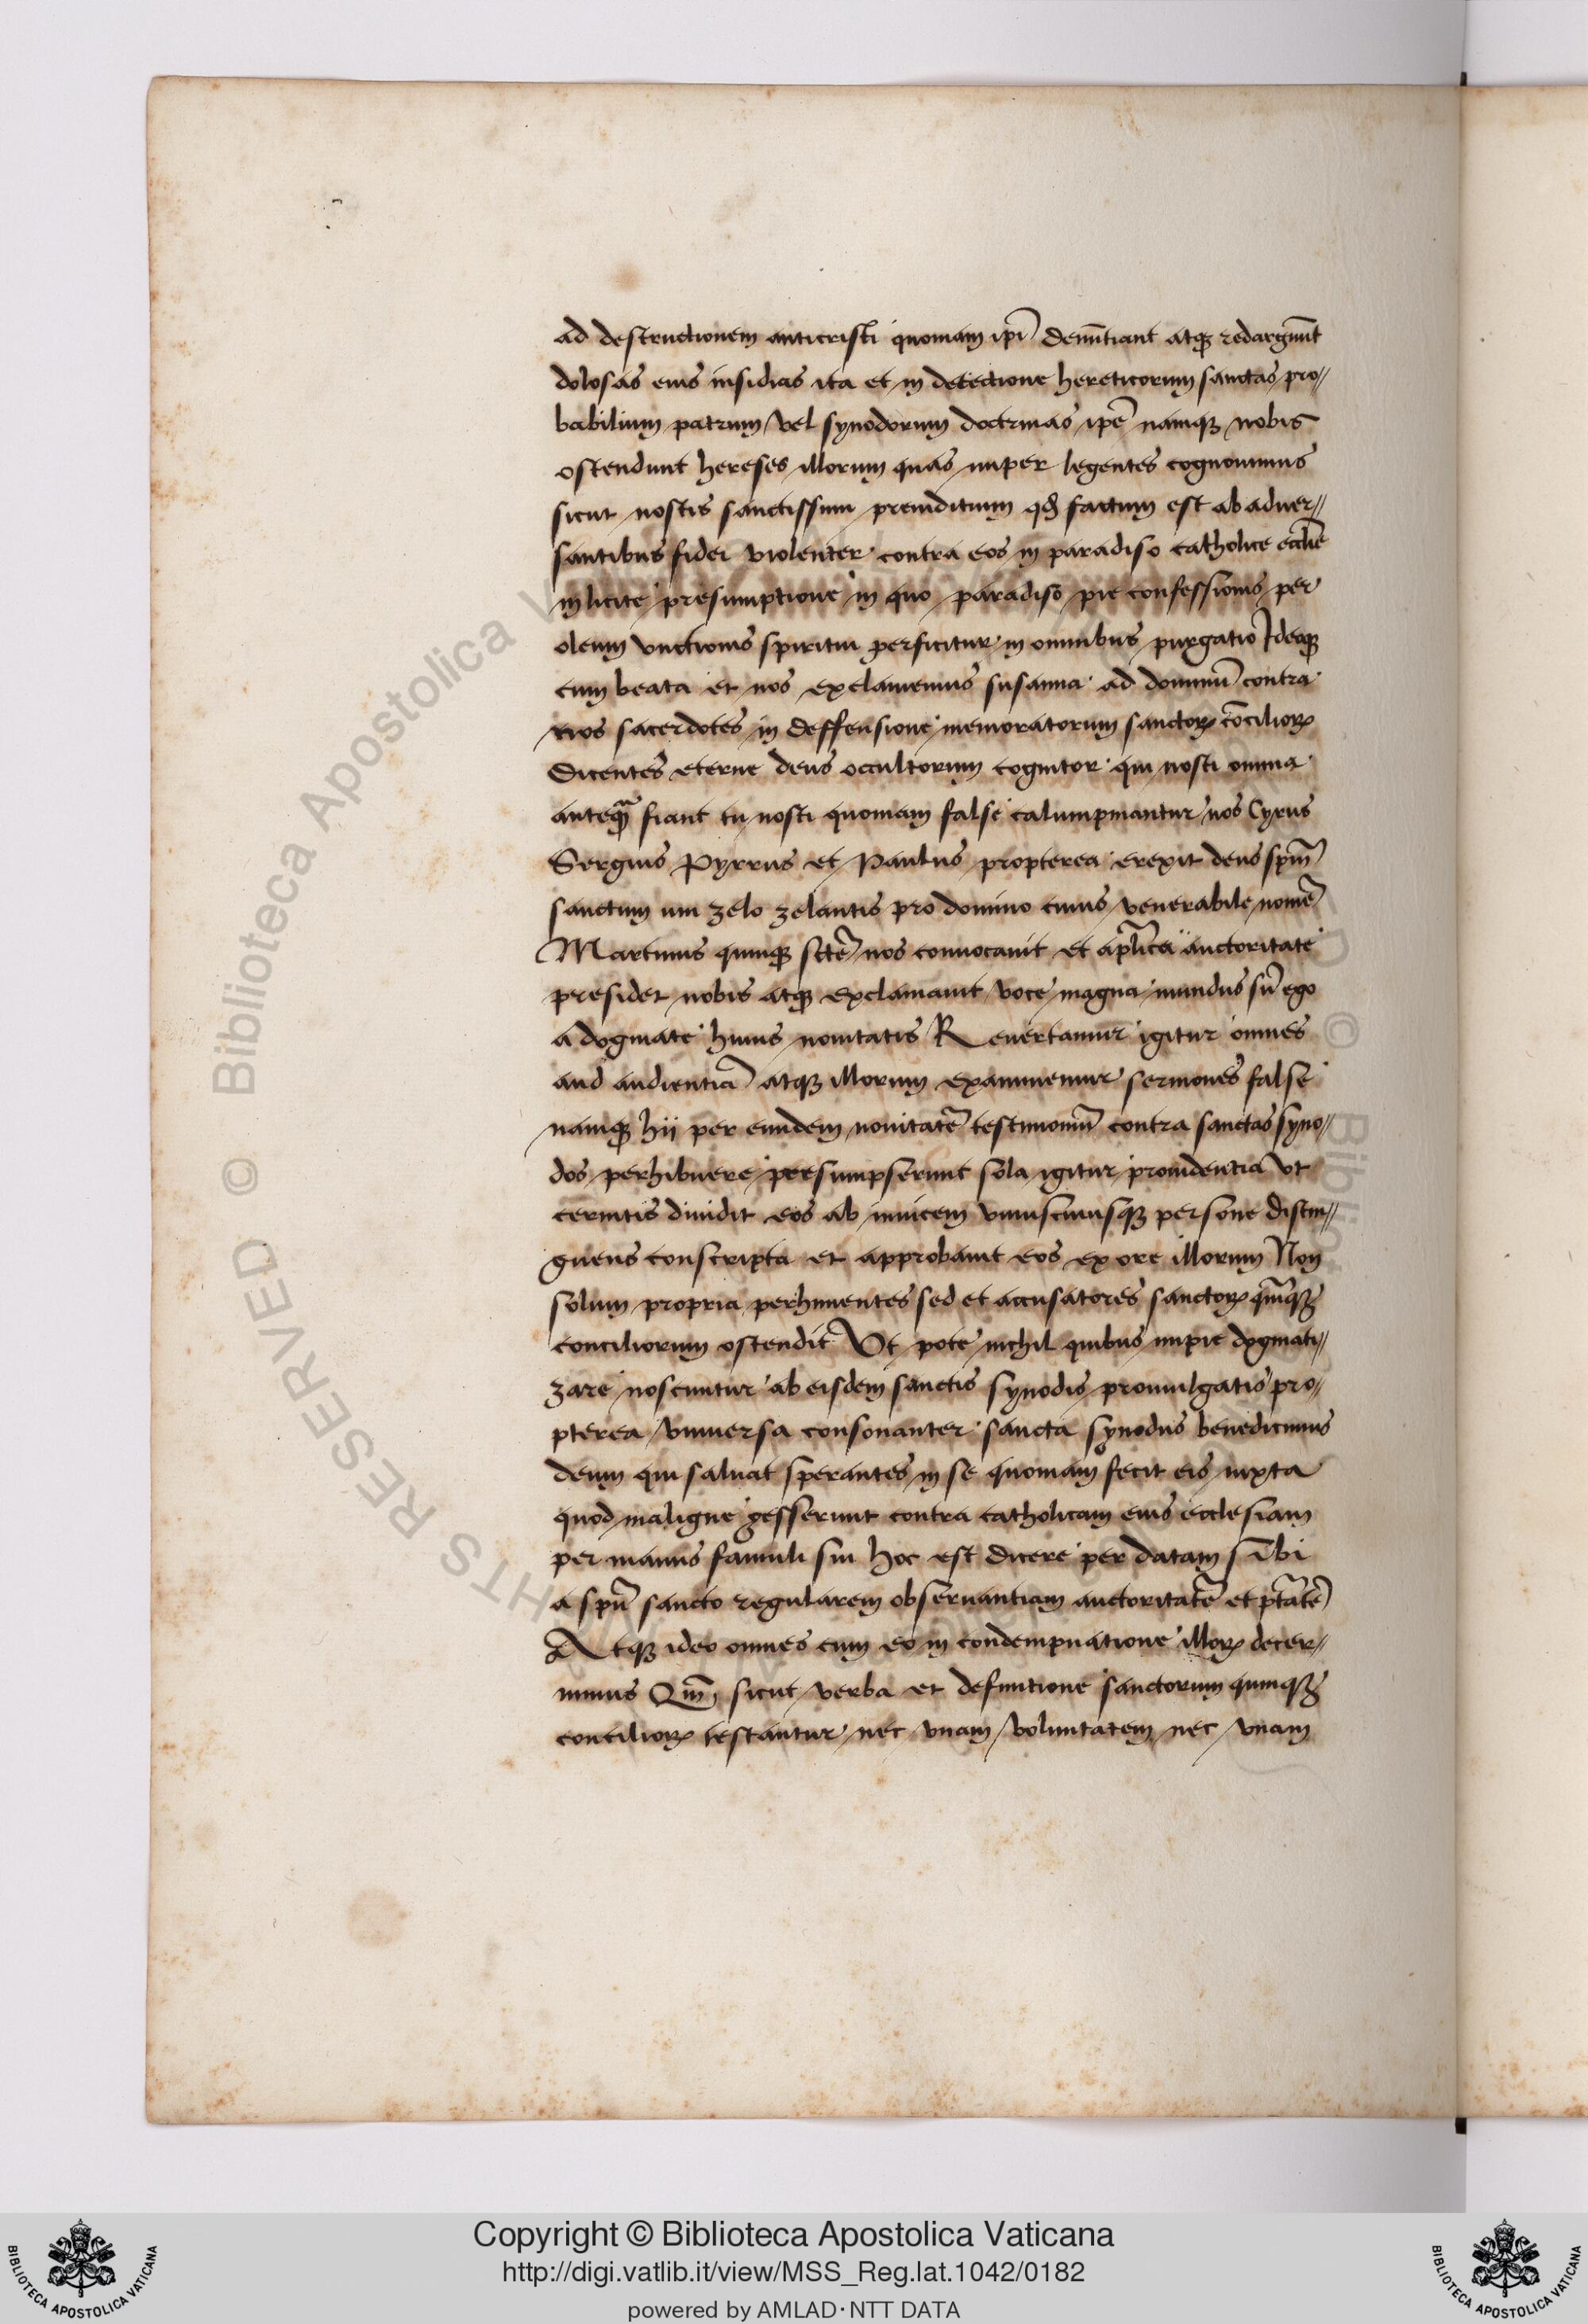 ad destructionem anticristi quoniam ipi̅ denu̅tiant atqꝫ redargūnt
dolosas eius insidias ita et in detectione hereticorum sanctas pro//
babilium patrum vel synodorum doctrinas ipe̅ namqꝫ nobis
ostendunt hereses illorum quas nuper legentes cognouimus
sicut nostis sanctissimi preuiditum qd̅ factum est ab aduer//
santibus fidei violenter contra eos in paradiso catholice eccl̅ie
in licite presumptione in quo paradiso pie confessionis per
oleum vnctionis spiritui perficitur in omnibus purgatio Ideoqꝫ
cum beata et nos exclamemus susanna ad dominu̅ contra
nos sacerdotes in deffensione memoratorum sanctoꝝ co̅cilioꝝ
Dicentes eterne deus occultorum cognitor qui nosti omnia
anteqᷓ fiant tu nosti quoniam false calumpniantur nos Cyrus
Sergius Pyrrus et Paulus propterea erexit deus sp̅m
sanctum uiri zelo zelantis pro domino cuius venerabile nome̅
Martinus quinqꝫ scte̅ nos conuocauit et ap̅lica auctoritate
presidet nobis atqꝫ exclamauit voce magna mundus su̅ ego
a dogmate huius nouitatis Reuertamur igitur omnes
aud audientia̅ atqꝫ illorum examinemur sermones false
namqꝫ hij per eiusdem nouitate̅ testimoniu̅ contra sanctas syno//
dos perhibuere presumpserunt sola igitur prouidentia vt
cernitis diuidit eos ab inuicem vniuscuiusqꝫ persone distin//
guens conscripta et approbauit eos ex ore illorum Non
solum propria perhimentes sed et accusatores sanctoꝝ qui̅qꝫ
conciliorum ostendit Vt pote nichil quibus impie dogmati//
zare noscuntur ab eisdem sanctis synodis promulgatis pro//
pterea vniuersa consonanter sancta synodus benedicimus
deum qui saluat sperantes in se quoniam fecit eis iuxta
quod maligne gesserunt contra catholicam eius ecclesiam
per manus famuli sui hoc est dicere per datam sibi
a spu̅ sancto regularem obseruantiam auctoritate̅ et p̅tate̅
Atqꝫ ideo omnes cum eo in condempnatione illoꝝ decer//
nimus Qm̅ sicut verba et definitione sanctorum quinqꝫ
concilioꝝ testantur nec vnam voluntatem nec vnam
Copyright © Biblioteca Apostolica Vaticana
http://digi.vatlib.it/view/MSS_Reg.lat.1042/0182
powered by AMLAD·NTT DATA
BIBLIOTECA APOSTOLICA VATICANA
BIBLIOTECA APOSTOLICA VATICANA